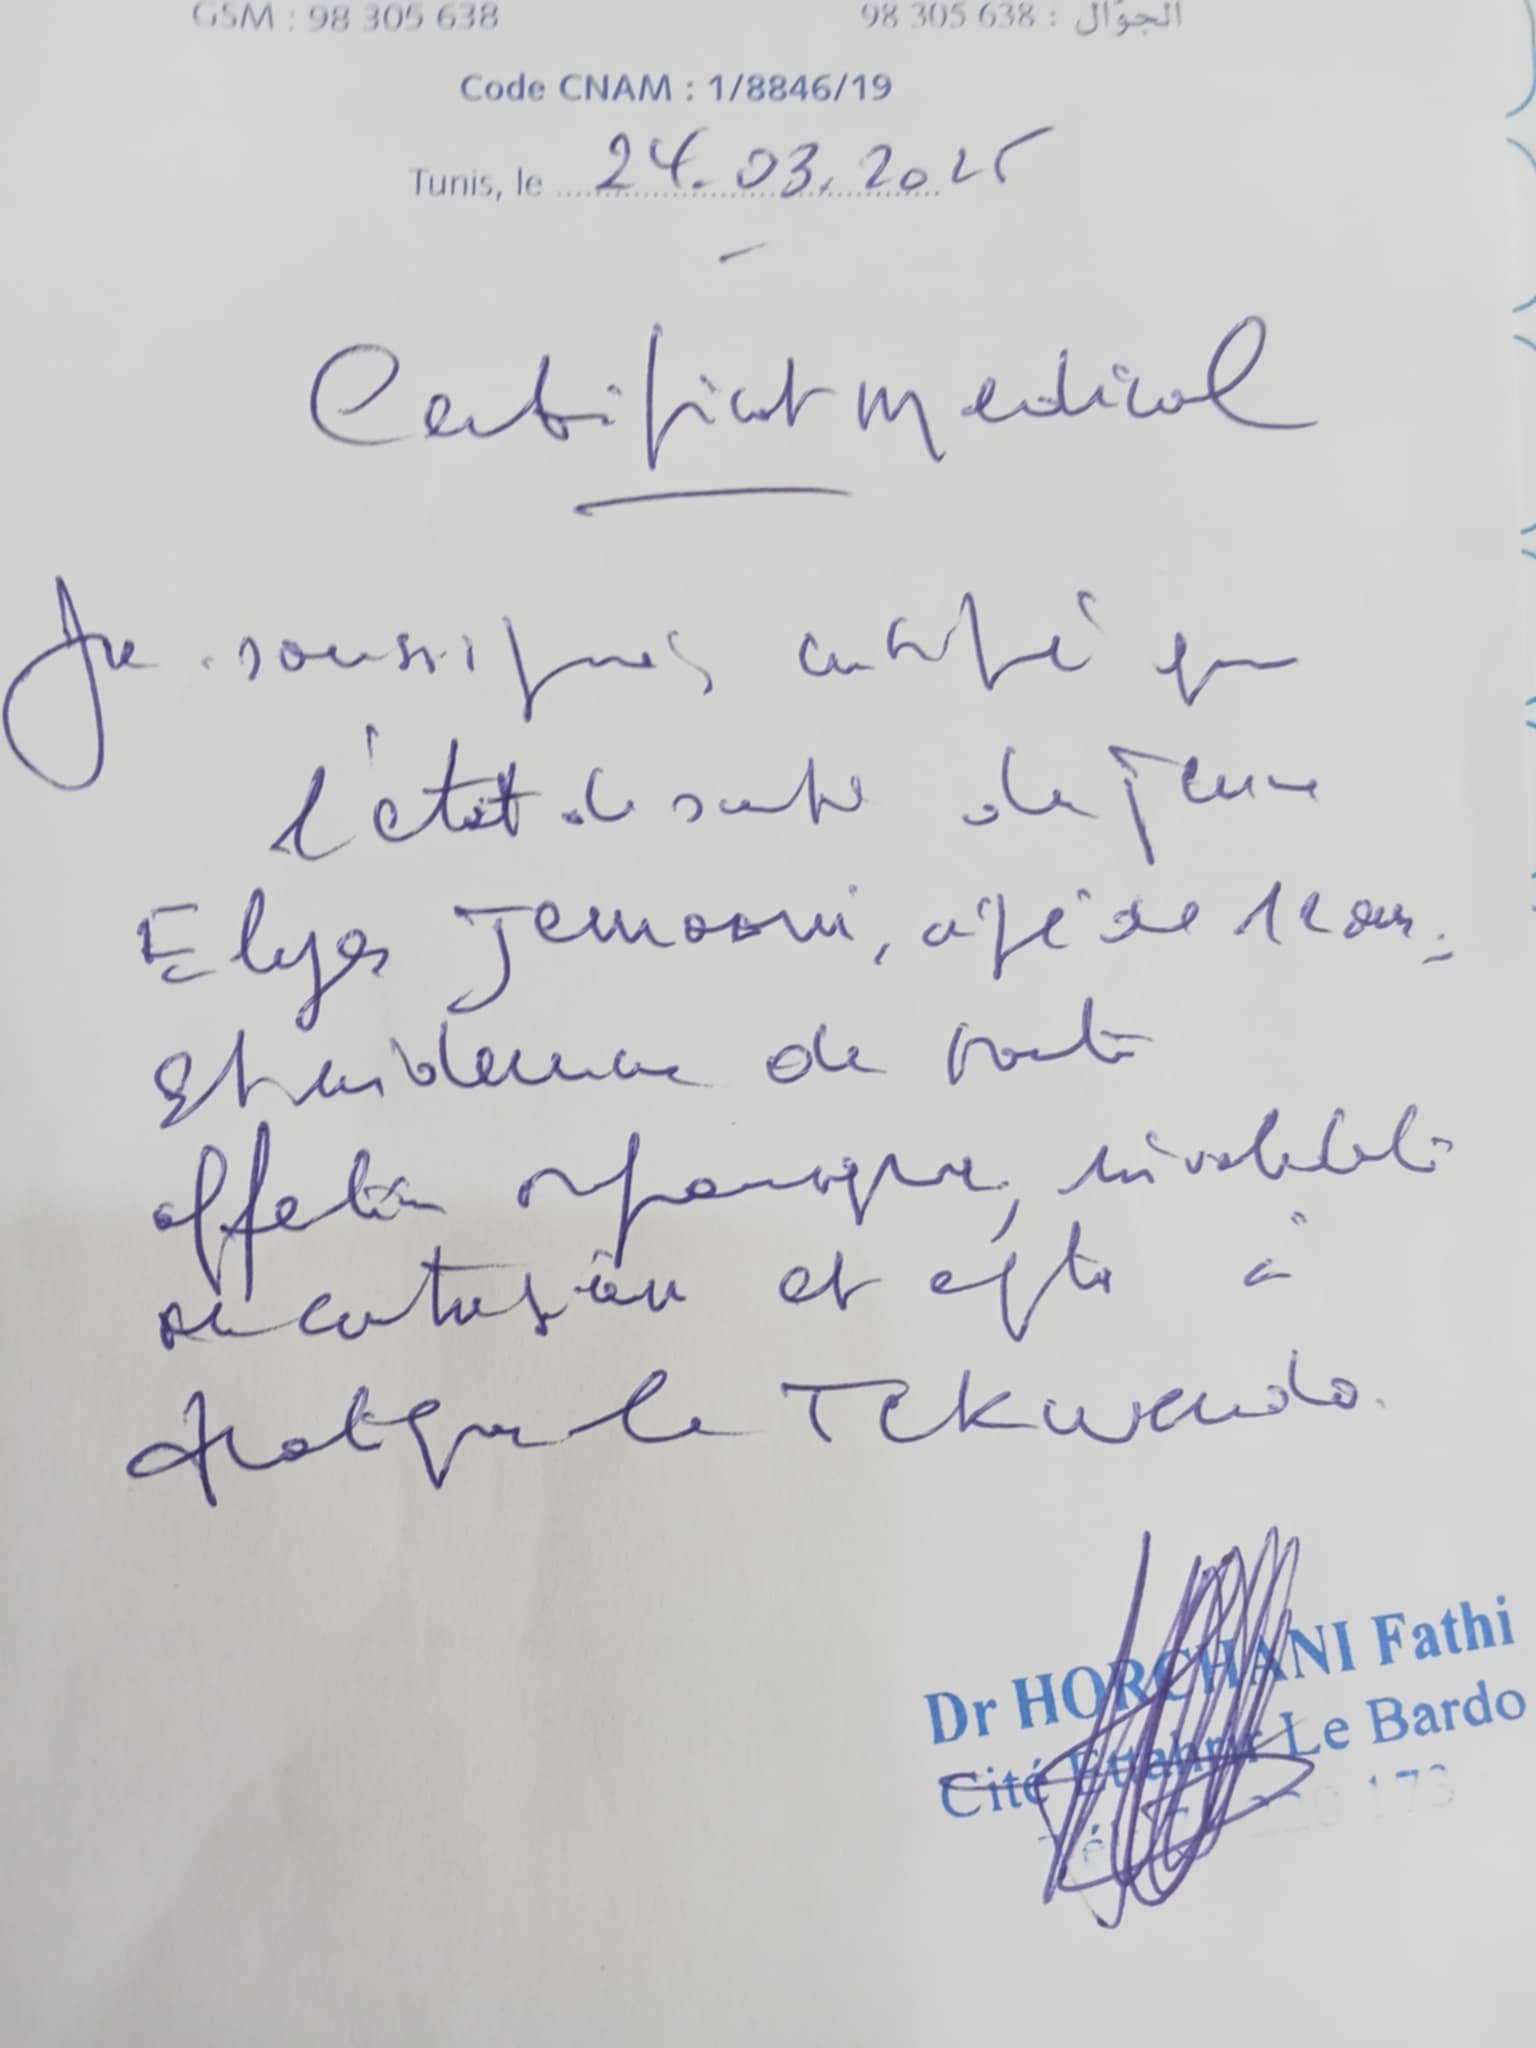 GSM : 98 305 638
الجوّال : 638 305 98
Code CNAM : 1/8846/19
Tunis, le 24.03.2025
Certificat medical
Je soussigné certifie que
l'état de santé du jeune
Elyes Jemaoui, âgé de ans.
est indemne de toute
affection organique,
contagieuse et apte à
pratiquer le Tekwendo.
Dr HORCHANI Fathi
Cité Ettahrir Le Bardo
Tél 220 173